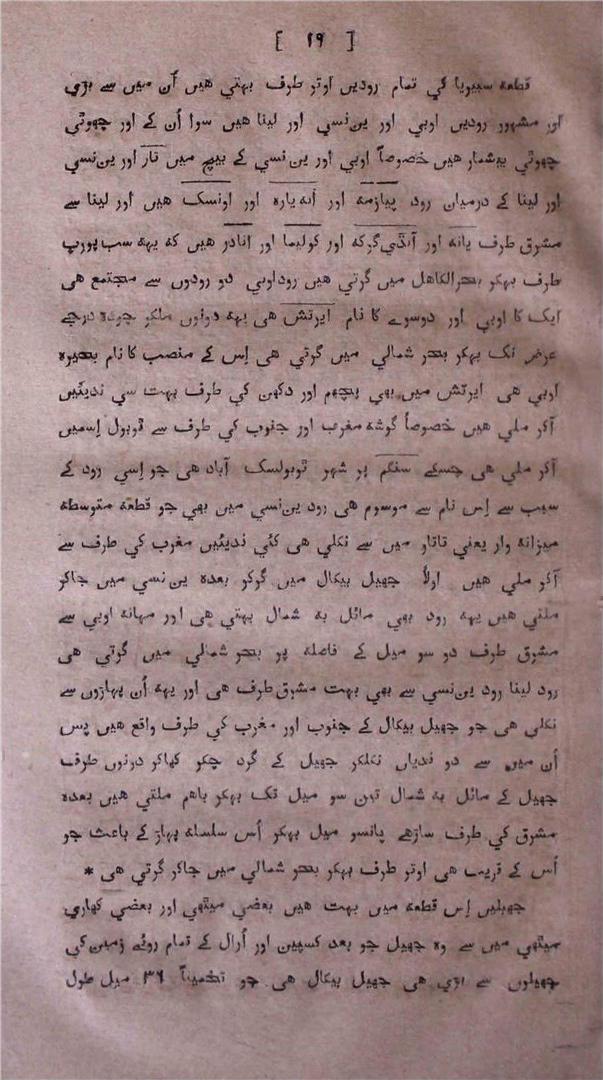 [ ۱۹ ]
قطعه سیبیریا کي تمام رودیں اوتر طرف بہتي هیں اُن میں سے بڑي
اور مشہور رودیں اوبي اور ین نسي اور لینا هیں سوا اُن کے اور چھوٹي
چھوٹي بیشمار هیں خصوصاً اوبي اور ین نسي کے بیچ میں تار اور ین نسي
اور لینا کے درمیان رود پیازمه اور انه باره اور اونسک هیں اور لینا سے
مشرق طرف یانه اور آندي گرکه اور کولیما اور انادر هیں که یہه سب پورب
طرف بہکر بحرالکاهل میں گرتي هیں رود اوبي دو رودوں سے مجتمع هی
ایک کا اوبي اور دوسرے کا نام ایرتش هی یہه دونوں ملکر چوده درجے
عرض تک بہکر بحر شمالي میں گرتي هی اِس کے منصب کا نام بحیره
اوبي هی ایرتش میں بھي پچھم اور دکھن کي طرف بہت سي ندیئیں
آکر ملي هیں خصوصاً گوشه مغرب اور جنوب کي طرف سے توبول اِسمیں
آکر ملي هی جسکے سنگم پر شہر توبولسک آباد هی جو اِسي رود کے
سبب سے اِس نام سے موسوم هی رود ین نسي میں بھي جو قطعه متوسطه
میزانه وار یعني تاتار میں سے نکلي هی کئي ندیئیں مغرب کي طرف سے
آکر ملي هیں اولاً جھیل بیکال میں گرکر بعده ین نسي میں جاکر
ملتي هیں یہه رود بھي مائل به شمال بہتي هی اور مہانه اوبي سے
مشرق طرف دو سو میل کے فاصله پر بحر شمالي میں گرتي هی
رود لینا رود ین نسي سے بھي بہت مشرق طرف هی اور یہه اُن پہاڑوں سے
نکلي هی جو جھیل بیکال کے جنوب اور مغرب کي طرف واقع هیں پس
اُن میں سے دو ندیاں نکلکر جھیل کے گرد چکر کھاکر دونوں طرف
جھیل کے مائل به شمال تین سو میل تک بہکر باهم ملتي هیں بعده
مشرق کي طرف ساڑهے پانسو میل بہکر اُس سلسله پہاڑ کے باعث جو
اُس کے قریب هی اوتر طرف بہکر بحر شمالي میں جاکر گرتي هی *
جھیلیں اِس قطعه میں بہت هیں بعضي میٹھي اور بعضي کھاري
میٹھي میں سے وه جھیل جو بعد کسپین اور اُرال کے تمام روئے زمین کي
جھیلوں سے بڑي هی جھیل بیکال هی جو تخمیناً ۳۶ میل طول